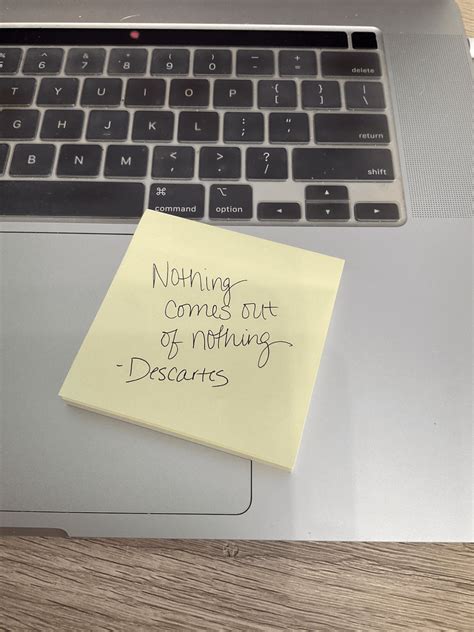 ^ 6 & 7 * 8 ( 9 ) 0 _ - + = delete
T Y U I O P { [ } ] | \
G H J K L : ; " ' return
B N M < , > . ? / shift
⌘ command ⌥ option ◀ ▲ ▼ ▶
Nothing
comes out
of nothing
-Descartes